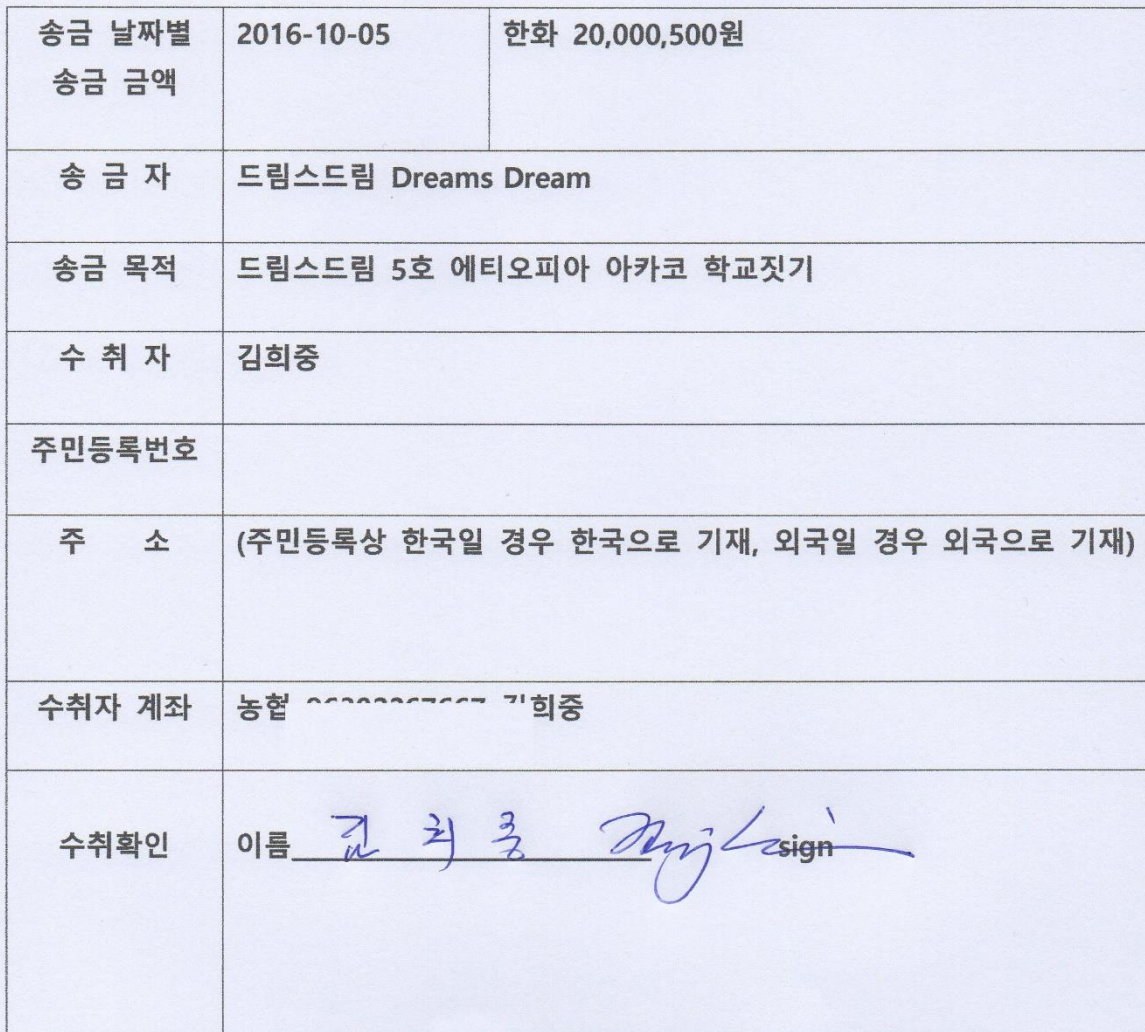 송금 날짜별
송금 금액
2016-10-05
한화 20,000,500원
송 금 자
드림스드림 Dreams Dream
송금 목적
드림스드림 5호 에티오피아 아카코 학교짓기
수 취 자
김희중
주민등록번호
주 소
(주민등록상 한국일 경우 한국으로 기재, 외국일 경우 외국으로 기재)
수취자 계좌
농협 희중
수취확인
이름 김 희 중 sign